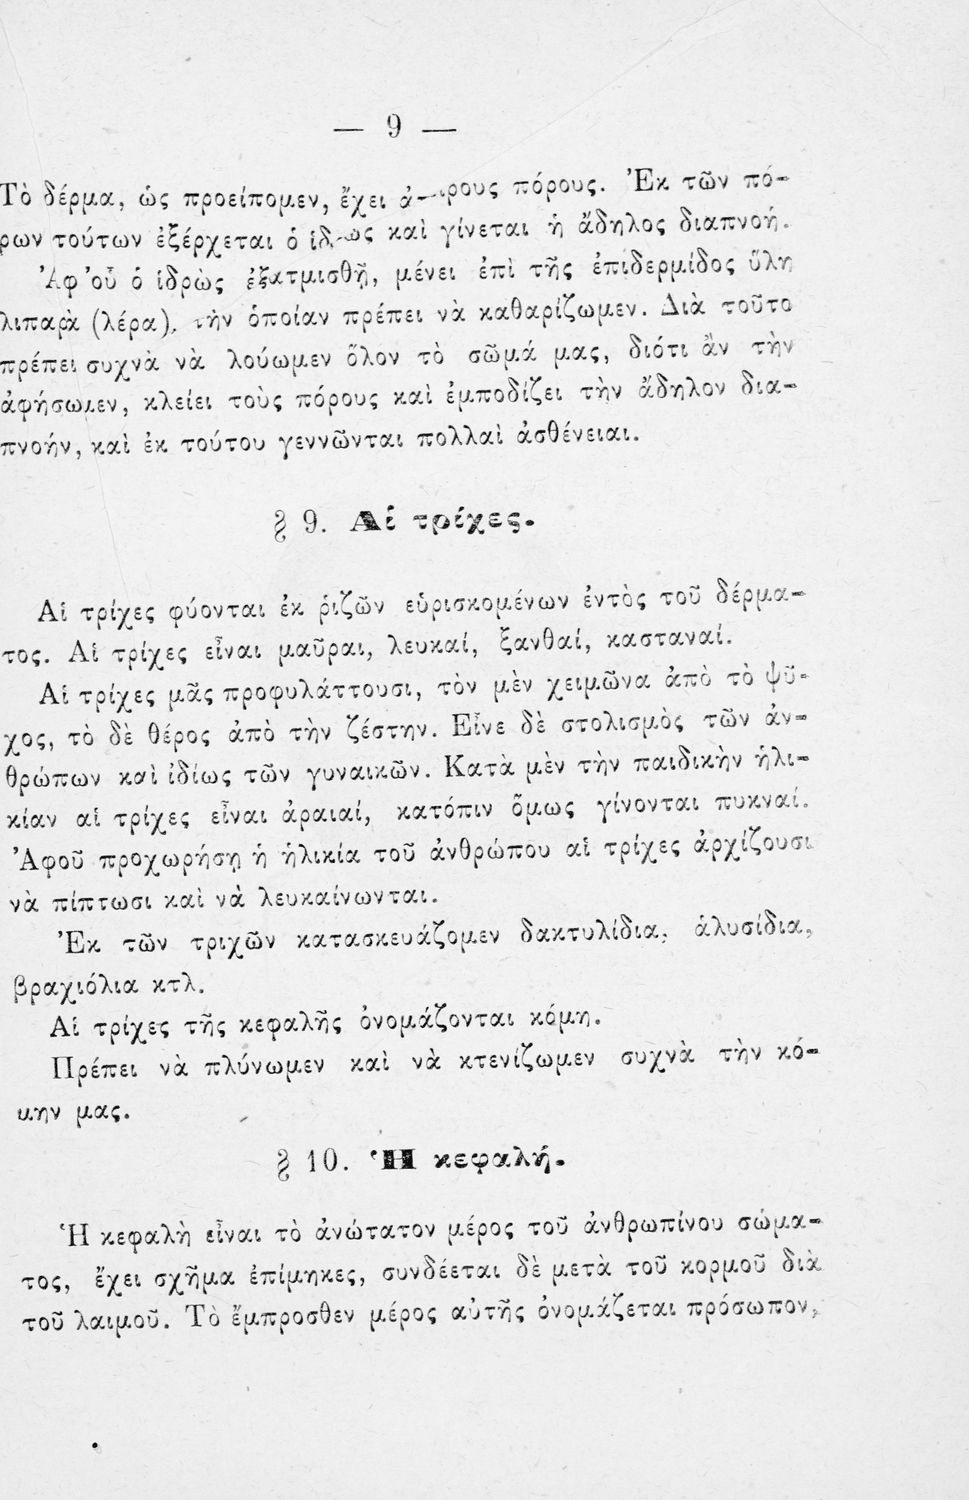 — 9 —
Τὸ δέρμα, ὡς προείπομεν, ἔχει πόρους. Ἐκ τῶν πό-
ρων τούτων ἐξέρχεται ὁ καὶ γίνεται ἡ ἄδηλος διαπνοή.
Ἀφ’οὗ ὁ ἱδρὼς ἐξατμισθῇ, μένει ἐπὶ τῆς ἐπιδερμίδος ὕλη
λιπαρὰ (λέρα), τὴν ὁποίαν πρέπει νὰ καθαρίζωμεν. Διὰ τοῦτο
πρέπει συχνὰ νὰ λούωμεν ὅλον τὸ σῶμά μας, διότι ἂν τὴν
ἀφήσωμεν, κλείει τοὺς πόρους καὶ ἐμποδίζει τὴν ἄδηλον δια-
πνοήν, καὶ ἐκ τούτου γεννῶνται πολλαὶ ἀσθένειαι.
§ 9. Αἱ τρίχες.
Αἱ τρίχες φύονται ἐκ ῥιζῶν εὑρισκομένων ἐντὸς τοῦ δέρμα-
τος. Αἱ τρίχες εἶναι μαῦραι, λευκαί, ξανθαί, κασταναί.
Αἱ τρίχες μᾶς προφυλάττουσι, τὸν μὲν χειμῶνα ἀπὸ τὸ ψῦ-
χος, τὸ δὲ θέρος ἀπὸ τὴν ζέστην. Εἶνε δὲ στολισμὸς τῶν ἀν-
θρώπων καὶ ἰδίως τῶν γυναικῶν. Κατὰ μὲν τὴν παιδικὴν ἡλι-
κίαν αἱ τρίχες εἶναι ἀραιαί, κατόπιν ὅμως γίνονται πυκναί.
Ἀφοῦ προχωρήσῃ ἡ ἡλικία τοῦ ἀνθρώπου αἱ τρίχες ἀρχίζουσι
νὰ πίπτωσι καὶ νὰ λευκαίνωνται.
Ἐκ τῶν τριχῶν κατασκευάζομεν δακτυλίδια, ἁλυσίδια,
βραχιόλια κτλ.
Αἱ τρίχες τῆς κεφαλῆς ὀνομάζονται κόμη.
Πρέπει νὰ πλύνωμεν καὶ νὰ κτενίζωμεν συχνὰ τὴν κό-
μην μας.
§ 10. Ἡ κεφαλή.
Ἡ κεφαλὴ εἶναι τὸ ἀνώτατον μέρος τοῦ ἀνθρωπίνου σώμα-
τος, ἔχει σχῆμα ἐπίμηκες, συνδέεται δὲ μετὰ τοῦ κορμοῦ διὰ
τοῦ λαιμοῦ. Τὸ ἔμπροσθεν μέρος αὐτῆς ὀνομάζεται πρόσωπον,